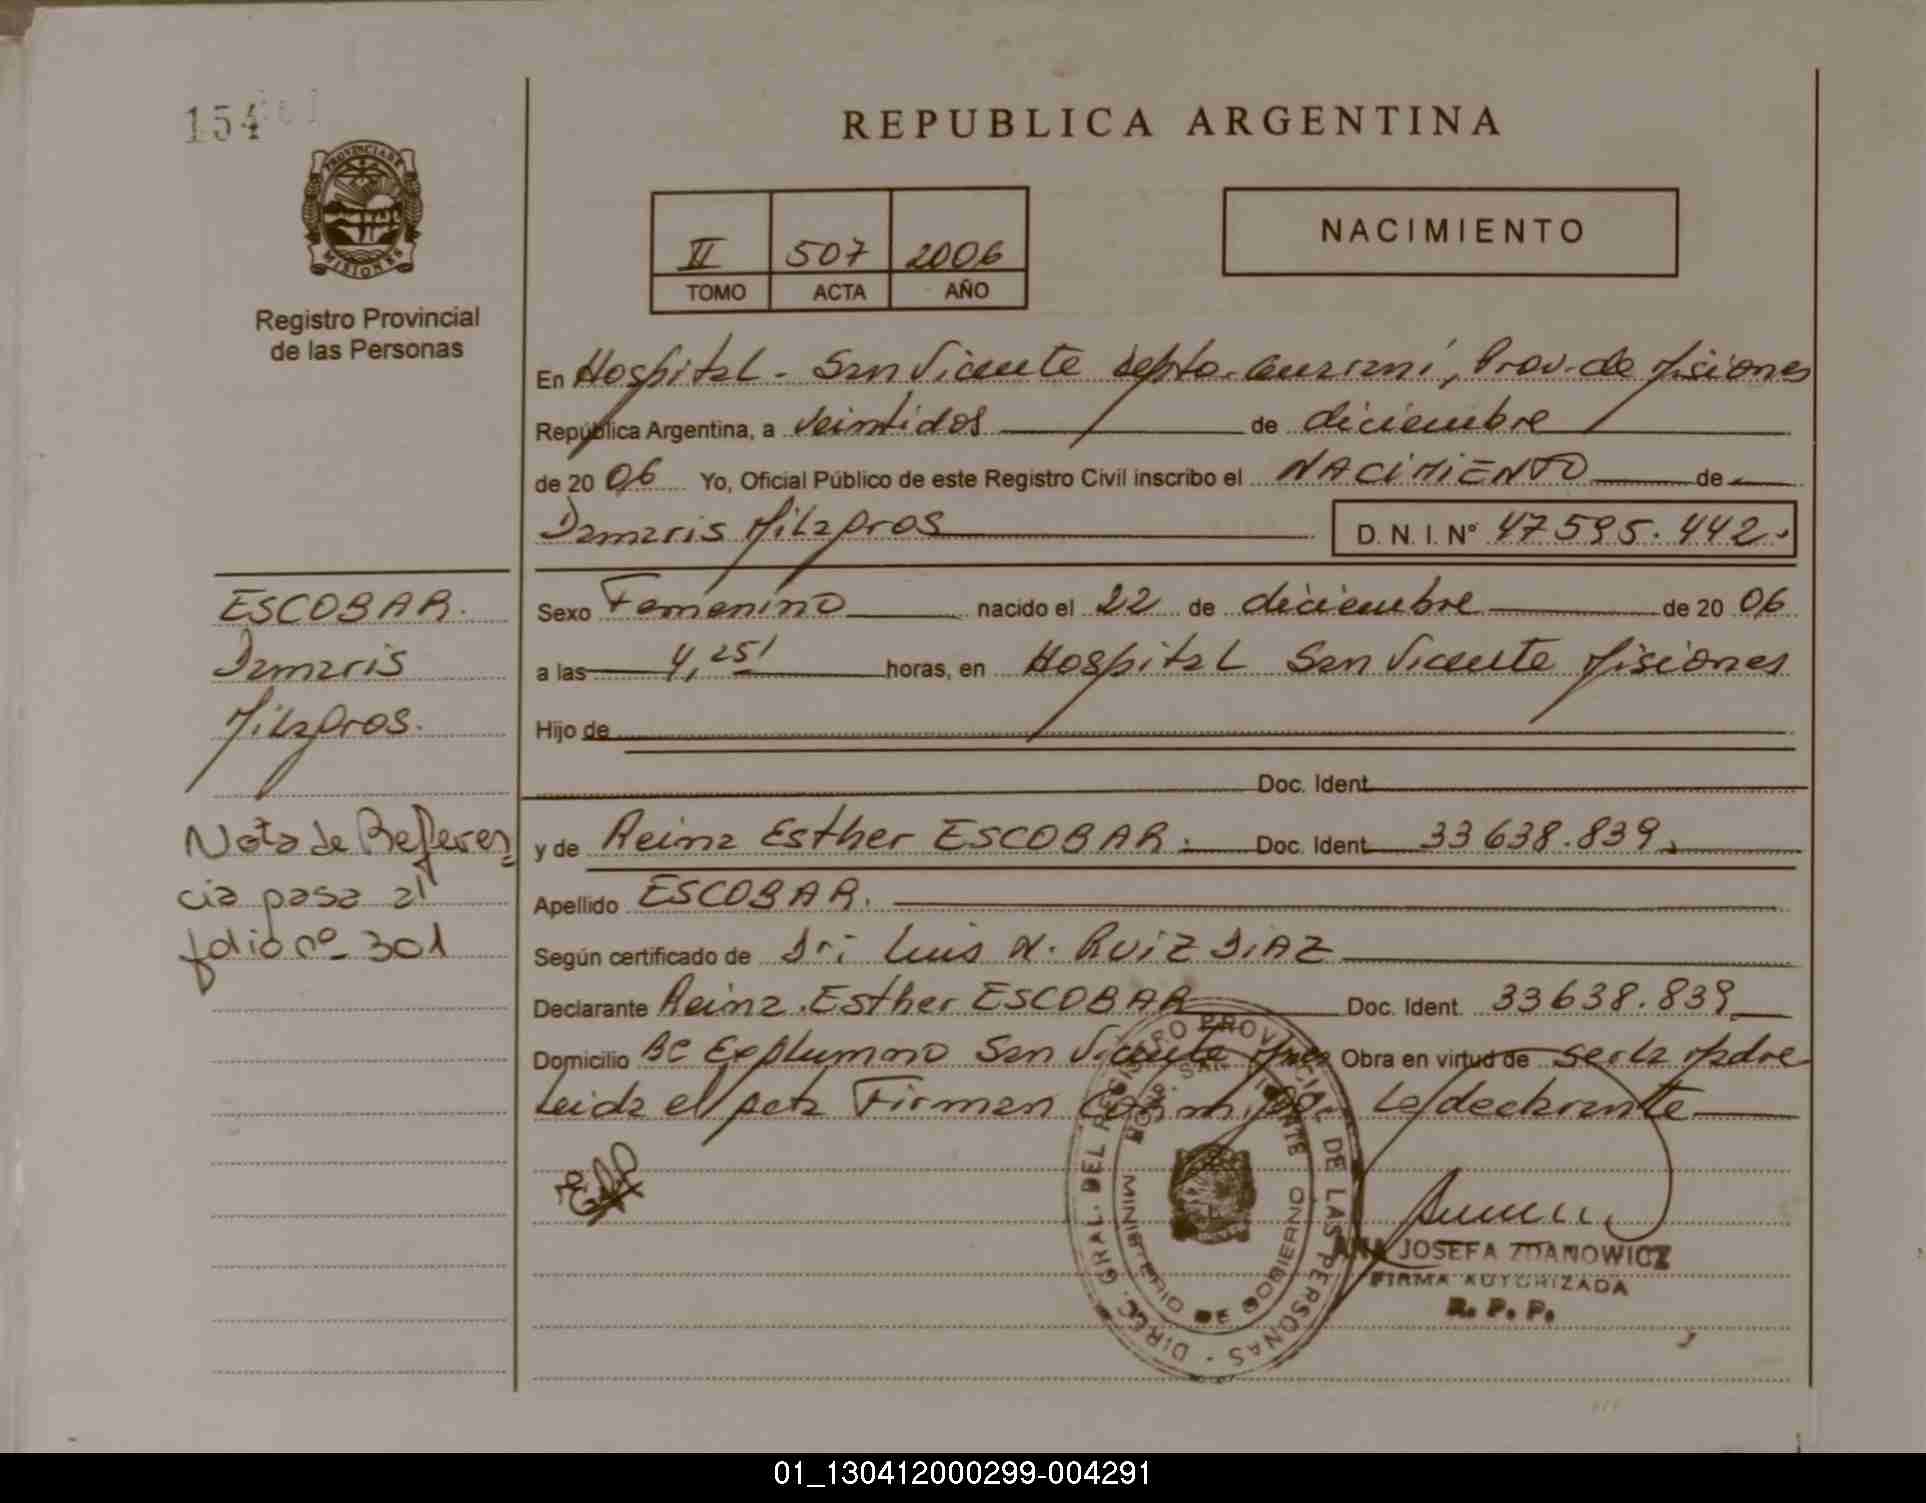 154
PROVINCIA DE
MISIONES
Registro Provincial
de las Personas
REPUBLICA ARGENTINA
II 507 2006
TOMO ACTA AÑO
NACIMIENTO
En Hospital - San Vicente Depto. Guaraní, Prov. de Misiones
República Argentina, a veintidos de diciembre
de 20 06 Yo, Oficial Público de este Registro Civil inscribo el NACIMIENTO de
Damaris Milagros D. N. I. N° 47595.442.
Sexo Femenino nacido el 22 de diciembre de 20 06
a las 4,25' horas, en Hospital San Vicente Misiones
Hijo de
Doc. Ident.
y de Reina Esther ESCOBAR. Doc. Ident. 33638.839.
Apellido ESCOBAR.
Según certificado de Dr: Luis N. RUIZ DIAZ
Declarante Reina Esther ESCOBAR Doc. Ident. 33638.839
Domicilio San Vicente Mnes Obra en virtud de ser la Madre
Leida el acta Firman conmigo La declarante
ESCOBAR.
Damaris
Milagros.
Nota de Referen
cia pasa al
folio nº 301
DIREC. GRAL. DEL REGISTRO PROVINCIAL DE LAS PERSONAS
HOSP. SAN VICENTE
MINISTERIO DE GOBIERNO
ANA JOSEFA ZDANOWICZ
FIRMA AUTORIZADA
R. P. P.
01_130412000299-004291